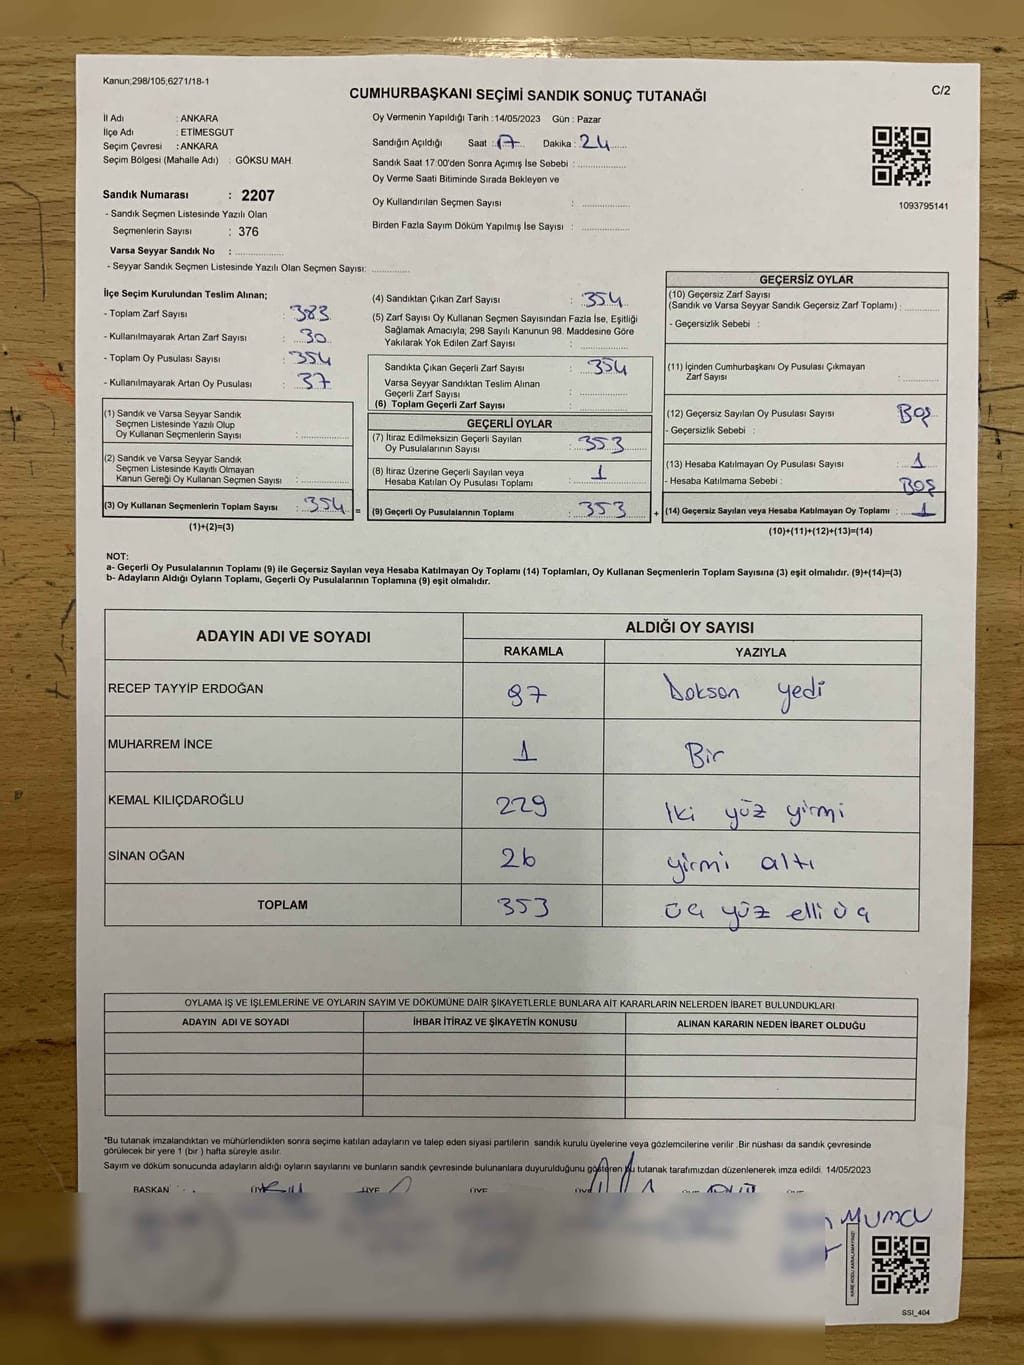 Kanun;298/105;6271/18-1
C/2
CUMHURBAŞKANI SEÇİMİ SANDIK SONUÇ TUTANAĞI
İl Adı : ANKARA
İlçe Adı : ETİMESGUT
Seçim Çevresi : ANKARA
Seçim Bölgesi (Mahalle Adı) : GÖKSU MAH.
Sandık Numarası : 2207
- Sandık Seçmen Listesinde Yazılı Olan
Seçmenlerin Sayısı : 376
Varsa Seyyar Sandık No : ..............
- Seyyar Sandık Seçmen Listesinde Yazılı Olan Seçmen Sayısı: ...........
Oy Vermenin Yapıldığı Tarih :14/05/2023 Gün : Pazar
Sandığın Açıldığı Saat : 17 Dakika : 24
Sandık Saat 17:00'den Sonra Açımış İse Sebebi : ..............
Oy Verme Saati Bitiminde Sırada Bekleyen ve
Oy Kullandırılan Seçmen Sayısı : ..............
Birden Fazla Sayım Döküm Yapılmış İse Sayısı : ..............
1093795141
İlçe Seçim Kurulundan Teslim Alınan;
- Toplam Zarf Sayısı : 383
- Kullanılmayarak Artan Zarf Sayısı : 30
- Toplam Oy Pusulası Sayısı : 354
- Kullanılmayarak Artan Oy Pusulası : 37
(1) Sandık ve Varsa Seyyar Sandık
Seçmen Listesinde Yazılı Olup
Oy Kullanan Seçmenlerin Sayısı : ..............
(2) Sandık ve Varsa Seyyar Sandık
Seçmen Listesinde Kayıtlı Olmayan
Kanun Gereği Oy Kullanan Seçmen Sayısı : ..............
(3) Oy Kullanan Seçmenlerin Toplam Sayısı : 354 =
(1)+(2)=(3)
(4) Sandıktan Çıkan Zarf Sayısı : 354
(5) Zarf Sayısı Oy Kullanan Seçmen Sayısından Fazla İse, Eşitliği
Sağlamak Amacıyla; 298 Sayılı Kanunun 98. Maddesine Göre
Yakılarak Yok Edilen Zarf Sayısı : ..............
Sandıkta Çıkan Geçerli Zarf Sayısı : 354
Varsa Seyyar Sandıktan Teslim Alınan
Geçerli Zarf Sayısı : ..............
(6) Toplam Geçerli Zarf Sayısı : ..............
GEÇERLİ OYLAR
(7) İtiraz Edilmeksizin Geçerli Sayılan
Oy Pusulalarının Sayısı : 353
(8) İtiraz Üzerine Geçerli Sayılan veya
Hesaba Katılan Oy Pusulası Toplamı : 1
(9) Geçerli Oy Pusulalarının Toplamı : 353 +
GEÇERSİZ OYLAR
(10) Geçersiz Zarf Sayısı
(Sandık ve Varsa Seyyar Sandık Geçersiz Zarf Toplamı) : ...........
- Geçersizlik Sebebi :
(11) İçinden Cumhurbaşkanı Oy Pusulası Çıkmayan
Zarf Sayısı : ...........
(12) Geçersiz Sayılan Oy Pusulası Sayısı Boş
- Geçersizlik Sebebi :
(13) Hesaba Katılmayan Oy Pusulası Sayısı : 1
- Hesaba Katılmama Sebebi : Boş
(14) Geçersiz Sayılan veya Hesaba Katılmayan Oy Toplamı : 1
(10)+(11)+(12)+(13)=(14)
NOT:
a- Geçerli Oy Pusulalarının Toplamı (9) ile Geçersiz Sayılan veya Hesaba Katılmayan Oy Toplamı (14) Toplamları, Oy Kullanan Seçmenlerin Toplam Sayısına (3) eşit olmalıdır. (9)+(14)=(3)
b- Adayların Aldığı Oyların Toplamı, Geçerli Oy Pusulalarının Toplamına (9) eşit olmalıdır.
ADAYIN ADI VE SOYADI ALDIĞI OY SAYISI
RAKAMLA YAZIYLA
RECEP TAYYİP ERDOĞAN 97 Dokson yedi
MUHARREM İNCE 1 Bir
KEMAL KILIÇDAROĞLU 229 İki yüz yirmi
SİNAN OĞAN 26 yirmi altı
TOPLAM 353 üç yüz elli üç
OYLAMA İŞ VE İŞLEMLERİNE VE OYLARIN SAYIM VE DÖKÜMÜNE DAİR ŞİKAYETLERLE BUNLARA AİT KARARLARIN NELERDEN İBARET BULUNDUKLARI
ADAYIN ADI VE SOYADI İHBAR İTİRAZ VE ŞİKAYETİN KONUSU ALINAN KARARIN NEDEN İBARET OLDUĞU
*Bu tutanak imzalandıktan ve mühürlendikten sonra seçime katılan adayların ve talep eden siyasi partilerin sandık kurulu üyelerine veya gözlemcilerine verilir .Bir nüshası da sandık çevresinde
görülecek bir yere 1 (bir ) hafta süreyle asılır.
Sayım ve döküm sonucunda adayların aldığı oyların sayılarını ve bunların sandık çevresinde bulunanlara duyurulduğunu gösteren bu tutanak tarafımızdan düzenlenerek imza edildi. 14/05/2023
BAŞKAN ÜYE ÜYE ÜYE
MUMCU
SSI_404